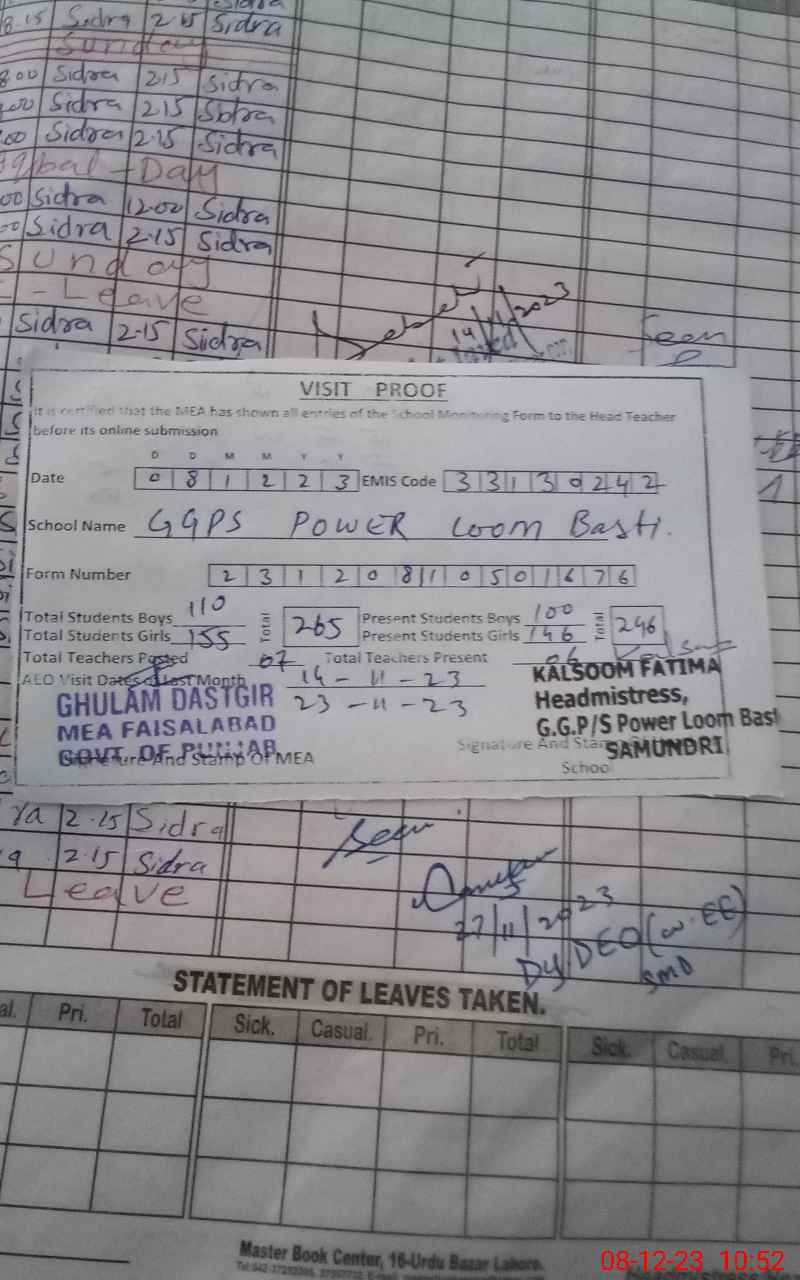 8.15 Sidra 2.15 Sidra
Sunday
8.00 Sidra 2.15 Sidra
.00 Sidra 2.15 Sidra
.00 Sidra 2.15 Sidra
Iqbal - Day
00 Sidra 12.00 Sidra
00 Sidra 2.15 Sidra
Sunday
- Leave
Sidra 2.15 Sidra
14/11/2023
Seen
VISIT PROOF
It is certified that the MEA has shown all entries of the School Monitoring Form to the Head Teacher
before its online submission
D D M M Y Y
Date 0 8 1 2 2 3 EMIS Code 3 3 1 3 0 2 4 2
School Name GGPS POWER Loom Basti.
Form Number 2 3 1 2 0 8 1 0 5 0 1 6 7 6
Total Students Boys 110 Total 265 Present Students Boys 100 Total 246
Total Students Girls 155 Present Students Girls 146
Total Teachers Posted 07 Total Teachers Present 06
AEO Visit Dates of Last Month 14 - 11 - 23
23 - 11 - 23
GHULAM DASTGIR
MEA FAISALABAD
GOVT. OF PUNJAB
Signature And Stamp Of MEA
KALSOOM FATIMA
Headmistress,
G.G.P/S Power Loom Bast
SAMUNDRI
Signature And Sta
Schoo
ra 2.15 Sidra
a 2.15 Sidra
Leave
Seen
27/11/2023
Dy/DEO (W.EE)
SMD
STATEMENT OF LEAVES TAKEN.
al. Pri. Total Sick. Casual. Pri. Total Sick. Casual Pri.
Master Book Center, 16-Urdu Bazar Lahore.
08-12-23 10:52